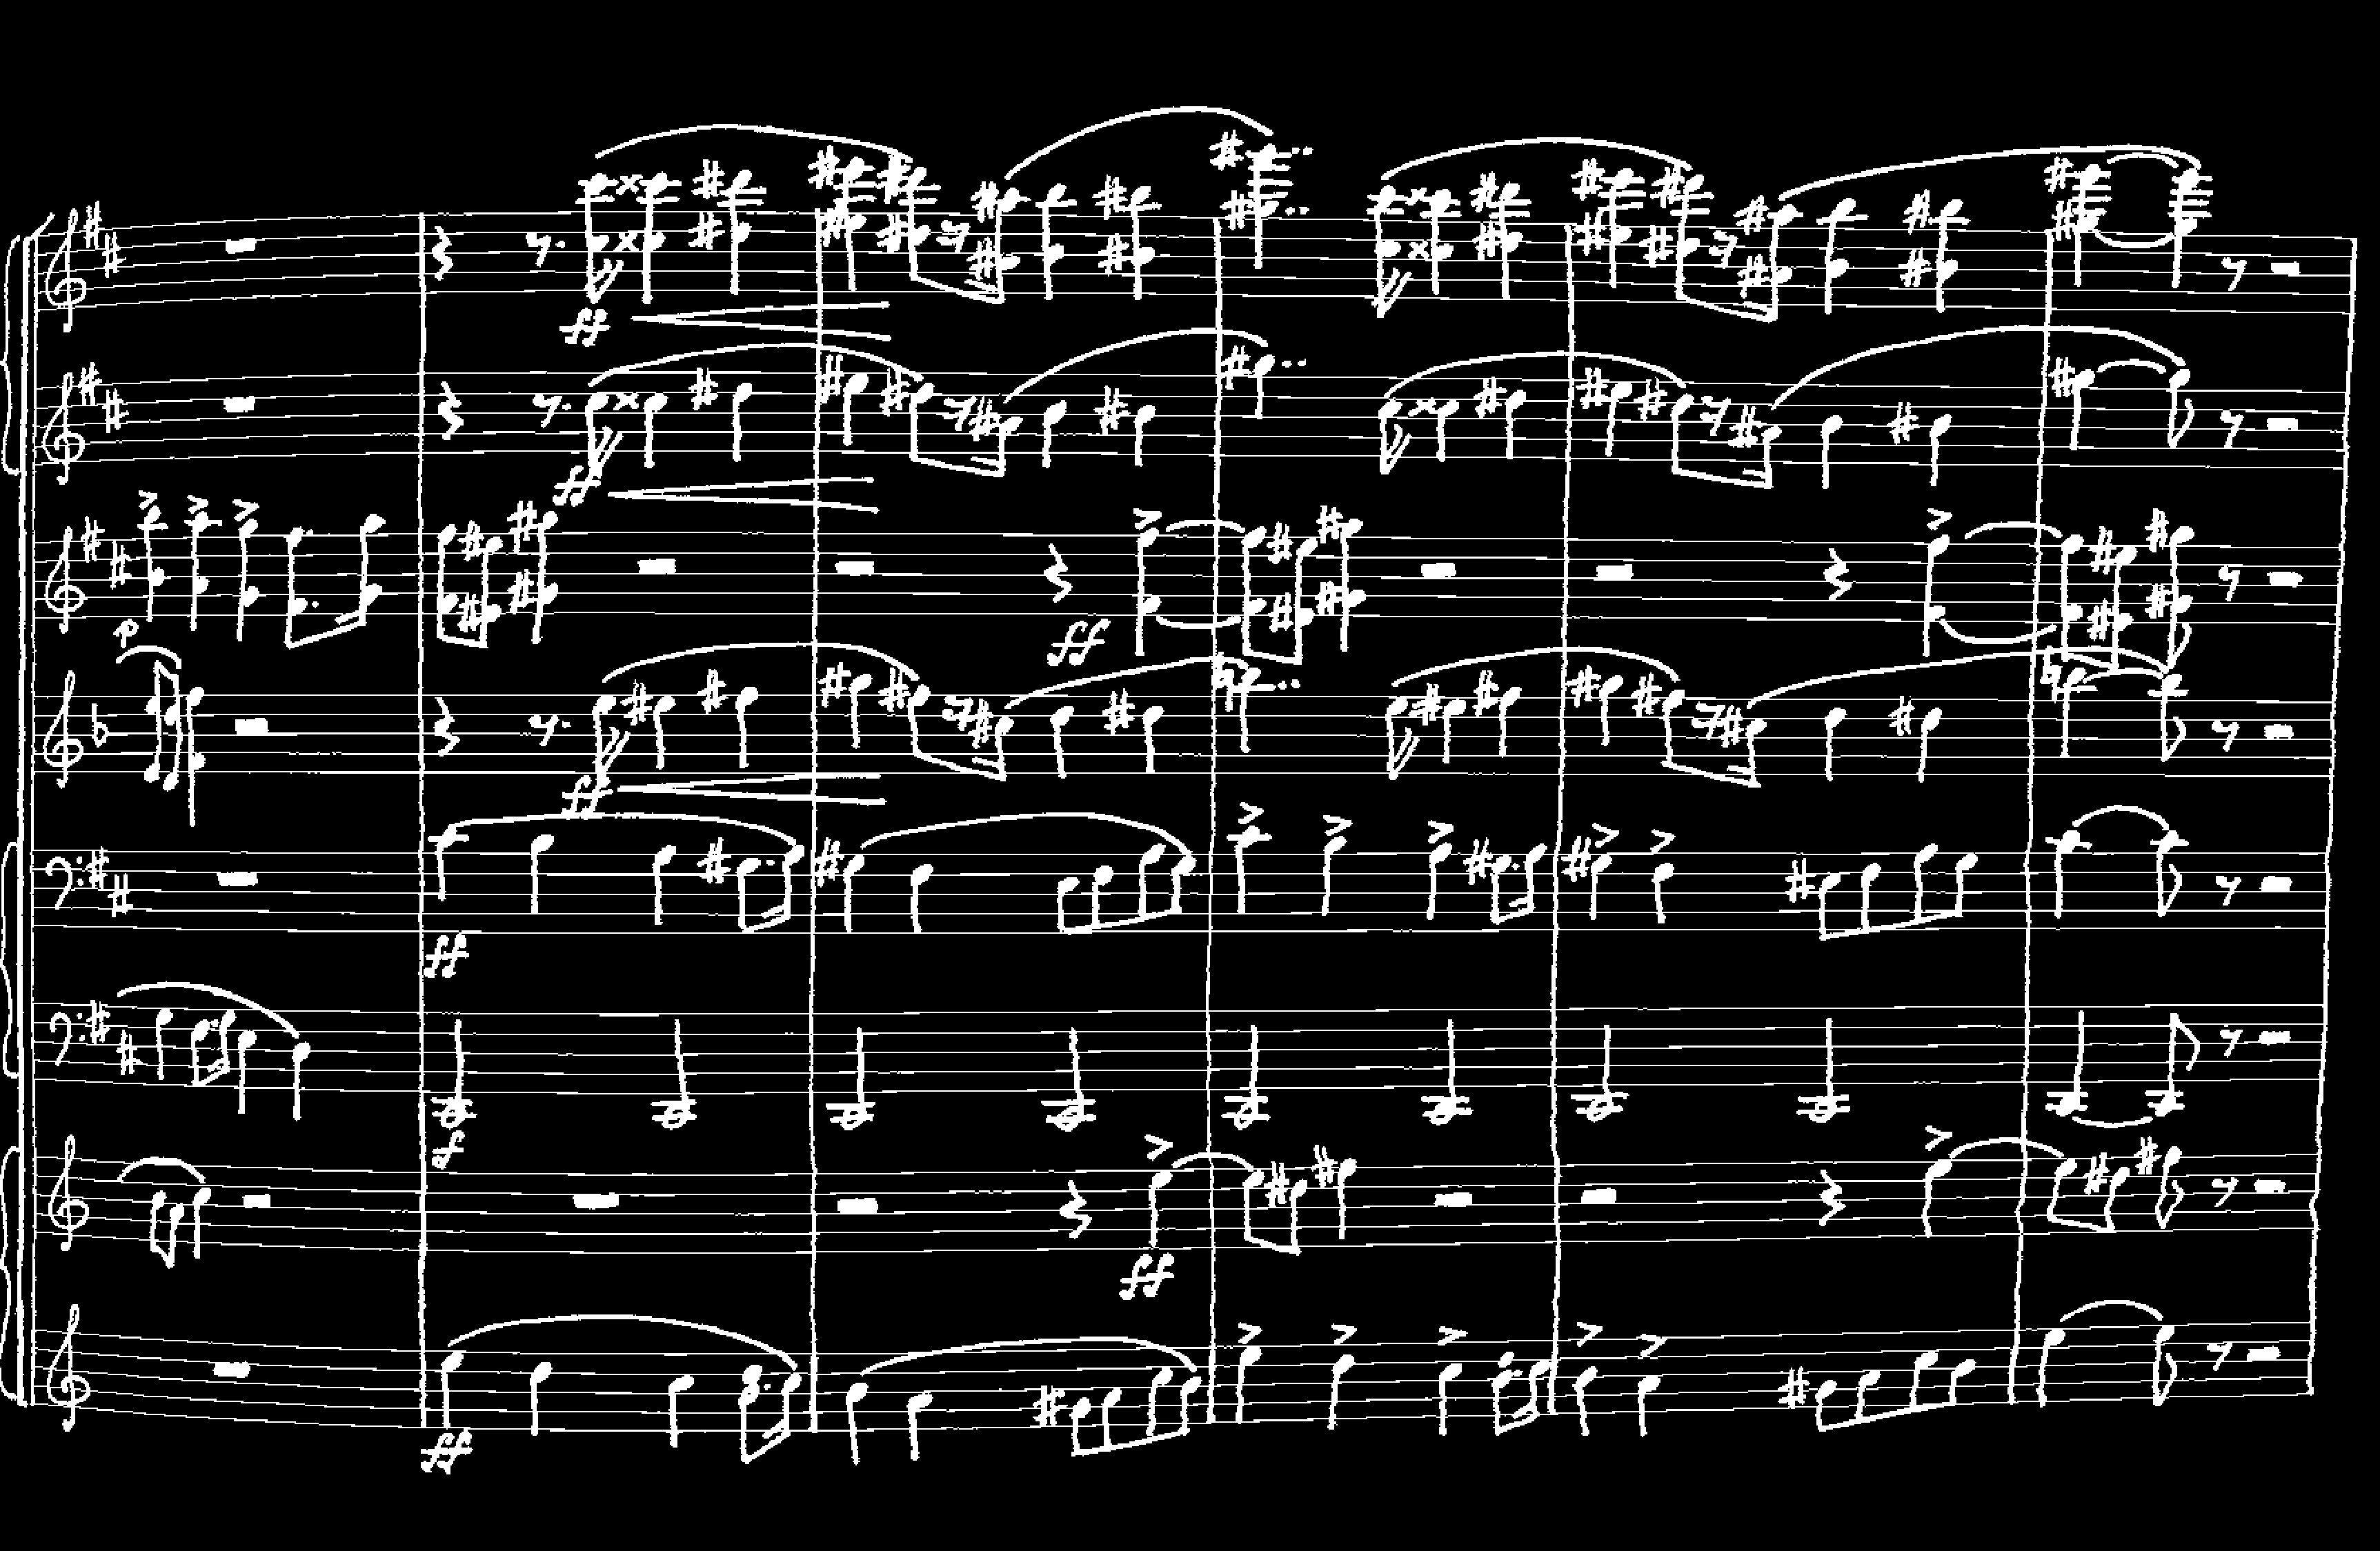 ff
ff
p
ff
ff
ff
sf
ff
ff